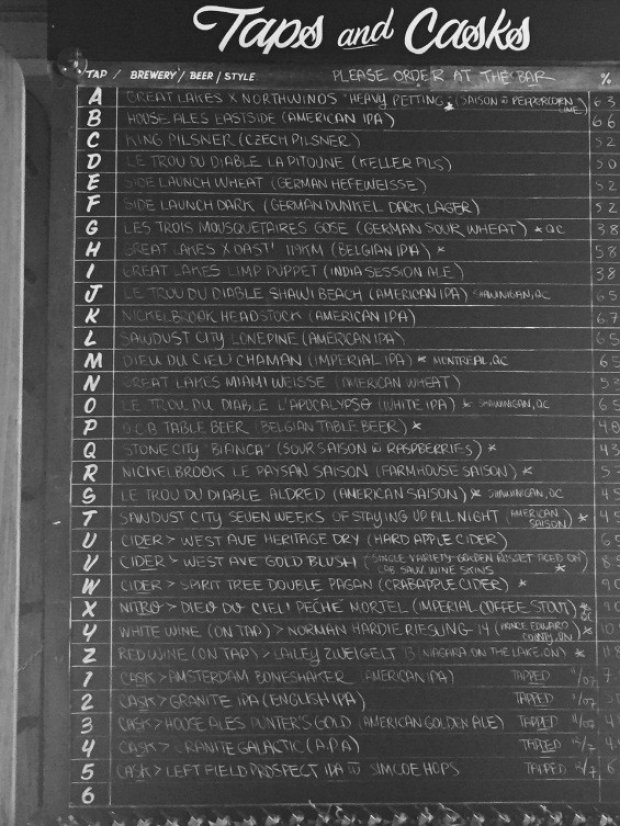 Taps and Casks
TAP / BREWERY / BEER / STYLE PLEASE ORDER AT THE BAR %
A GREAT LAKES X NORTHWINDS "HEAVY PETTING" (SAISON W PEPPERCORN LIME) 6 3
B HOUSE ALES EASTSIDE (AMERICAN IPA) 6 6
C KING PILSNER (CZECH PILSNER) 5 2
D LE TROU DU DIABLE LA PITOUNE (KELLER PILS) 5 0
E SIDE LAUNCH WHEAT (GERMAN HEFEWEISSE) 5 2
F SIDE LAUNCH DARK (GERMAN DUNKEL DARK LAGER) 5 2
G LES TROIS MOUSQUETAIRES GOSE (GERMAN SOUR WHEAT) * QC 3 8
H GREAT LAKES X OAST! 119KM (BELGIAN IPA) * 5 8
I GREAT LAKES LIMP PUPPET (INDIA SESSION ALE) 3 8
J LE TROU DU DIABLE SHAWI BEACH (AMERICAN IPA) SHAWINIGAN, QC 6 5
K NICKELBROOK HEADSTOCK (AMERICAN IPA) 6 7
L SAWDUST CITY LONEPINE (AMERICAN IPA) 6 5
M DIEU DU CIEL! CHAMAN (IMPERIAL IPA) * MONTREAL, QC 6 5
N GREAT LAKES MIAMI WEISSE (AMERICAN WHEAT) 5 3
O LE TROU DU DIABLE L'APOCALYPSO (WHITE IPA) * SHAWINIGAN, QC 6 5
P TABLE BEER (BELGIAN TABLE BEER) * 4 0
Q STONE CITY "BIANCA" (SOUR SAISON W RASPBERRIES) * 4 3
R NICKELBROOK LE PAYSAN SAISON (FARMHOUSE SAISON) * 5
S LE TROU DU DIABLE ALDRED (AMERICAN SAISON) * SHAWINIGAN, QC 4 5
T SAWDUST CITY SEVEN WEEKS OF STAYING UP ALL NIGHT (AMERICAN SAISON) * 4 5
U CIDER > WEST AVE HERITAGE DRY (HARD APPLE CIDER) 6 5
V CIDER > WEST AVE GOLD BLUSH (SINGLE VARIETY GOLDEN RUSSET AGED ON CAB SAUV. WINE SKINS * 8
W CIDER > SPIRIT TREE DOUBLE PAGAN (CRABAPPLE CIDER) * 9
X NITRO > DIEU DU CIEL! PÉCHÉ MORTEL (IMPERIAL COFFEE STOUT) * QC 9
Y WHITE WINE (ON TAP) > NORMAN HARDIE RIESLING 14 (PRINCE EDWARD COUNTY, ON) * 10
Z RED WINE (ON TAP) > LAILEY ZWEIGELT 13 (NIAGARA ON THE LAKE, ON) * 11
1 CASK > AMSTERDAM BONESHAKER (AMERICAN IPA) TAPPED 11/07 7
2 CASK > GRANITE IPA (ENGLISH IPA) TAPPED 11/07 5
3 CASK > HOUSE ALES HUNTER'S GOLD (AMERICAN GOLDEN ALE) TAPPED 11/07 4
4 CASK > GRANITE GALACTIC (APA) TAPPED 12/7 4
5 CASK > LEFT FIELD PROSPECT IPA W SIMCOE HOPS TAPPED 12/7 6
6